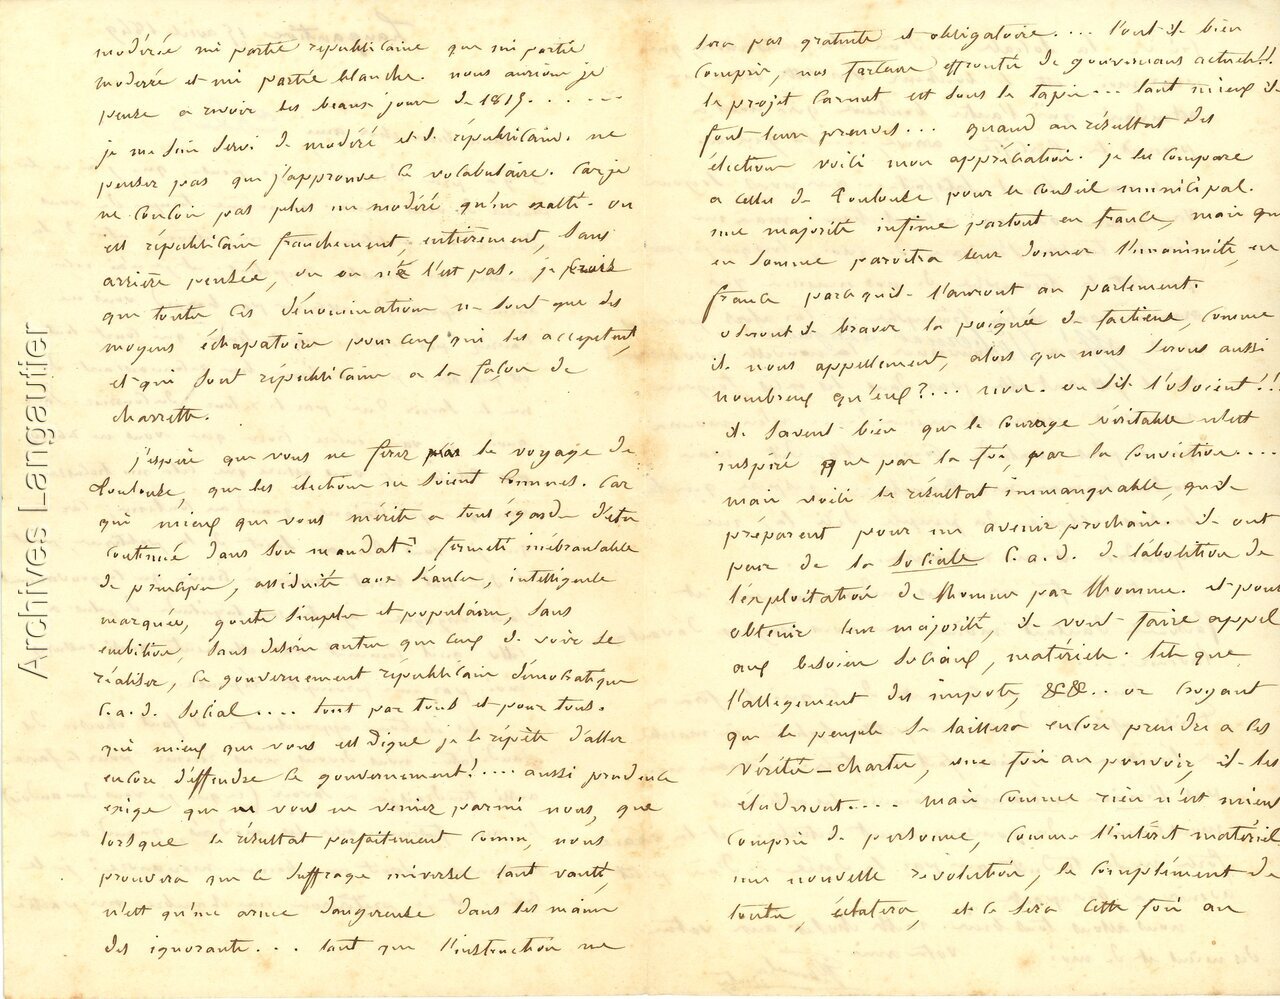 modérée mi partie républicaine que mi partie
modérée et mi partie blanche. nous aurions je
pense a revoir les beaux jours de 1815. . . . . .
je me suis servi de modéré et de républicain. ne
penser pas que j'approuve ce vocabulaire. car je
ne conçois pas plus un modéré qu'un exalté. on
est républicain franchement, entièrement, sans
arrière pensée, ou on ne l'est pas. je crois
que toutes ces dénominations ne sont que des
moyens échapatoire pour ceux qui les acceptent,
et qui sont républicain a la façon de
charrette.
j'espère que vous ne ferez pas le voyage de
Toulouse, que les élections ne soient connues. car
qui mieux que vous mérite a tous égards d'etre
continué dans son mandat? fermeté inébranlable
de principes, assiduité aux séances, intelligence
marquée, gouts simples et populaires, sans
embition, sans desirs autre que ceux de voir se
réaliser, ce gouvernement républicain démocratique
c.a.d. social .... tout par tous et pour tous.
qui mieux que vous est digne je le répète d'aller
encore déffendre ce gouvernement! .... aussi prudence
exige que vous ne veniez parmi nous, que
lorsque le résultat parfaitement connu, nous
prouvera que ce suffrage universel tant vanté,
n'est qu'une arme dangereuse dans les mains
des ignorants... tant que l'instruction ne
sera pas gratuite et obligatoire.... l'ont-ils bien
compris, nos farceurs effrontés de gouvernans actuels!!
le projet Carnot est sous le tapis... tant mieux ils
font leurs preuves... quand au résultat des
élections voilà mon appréciation. je les compare
a celles de Toulouse pour le conseil municipal.
une majorité infime partout en france, mais qui
en somme paroitra leur donner l'unanimité, en
france parcequ'ils l'auront au parlement.
oseront-ils braver la poignée de factieux, comme
ils nous appellement, alors que nous serons aussi
nombreux qu'eux?... non. ou s'ils l'osoient!!!
ils savent bien que le courage véritable n'est
inspiré que par la foi, par la conviction....
mais voilà le résultat immanquable, qu'ils
préparent pour un avenir prochain. ils ont
peur de la sociale c.a.d. de l'abolition de
l'exploitation de l'homme par l'homme. et pour
obtenir leur majorité, ils vont faire appel
aux besoins sociaux, matériels. tels que
l'allegement des impots, &&.. or croyant
que le peuple se laissera encore prendre a ces
vérités-chartes, une fois au pouvoir, ils les
éluderont.... mais comme rien n'est mieux
compris de personne, comme l'intérêt matériel
une nouvelle révolution, le complément de
toutes, éclatera, et ce sera cette fois au
Archives Langautier